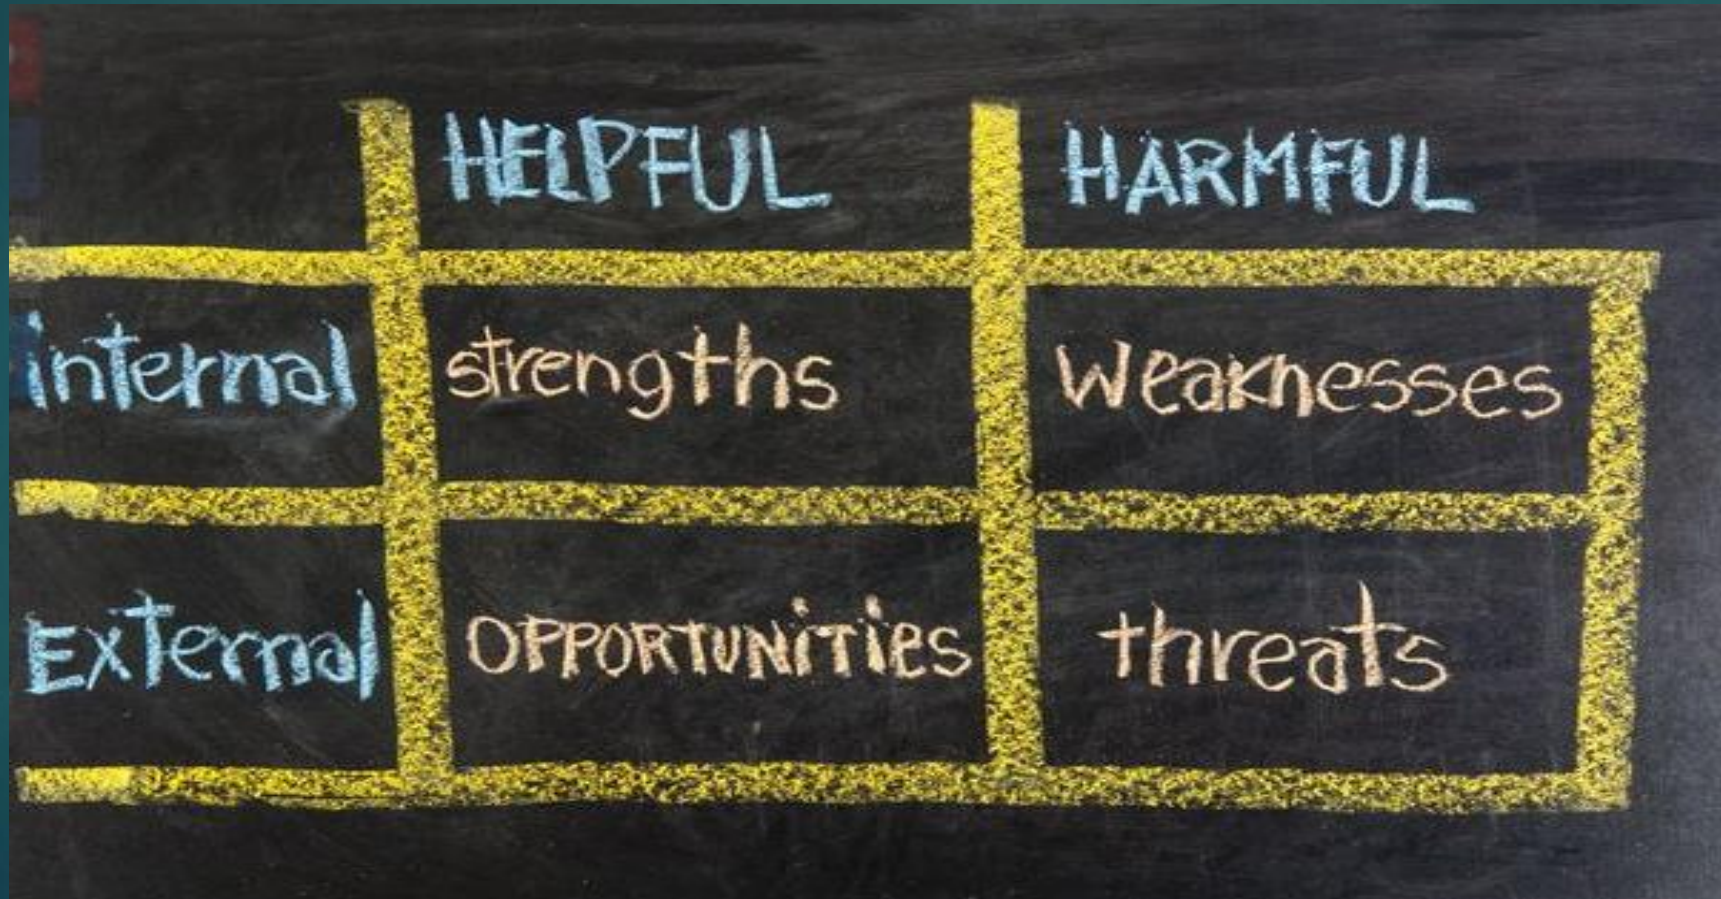 HELPFUL HARMFUL
internal strengths Weaknesses
External OPPORTUNiTiEs threats